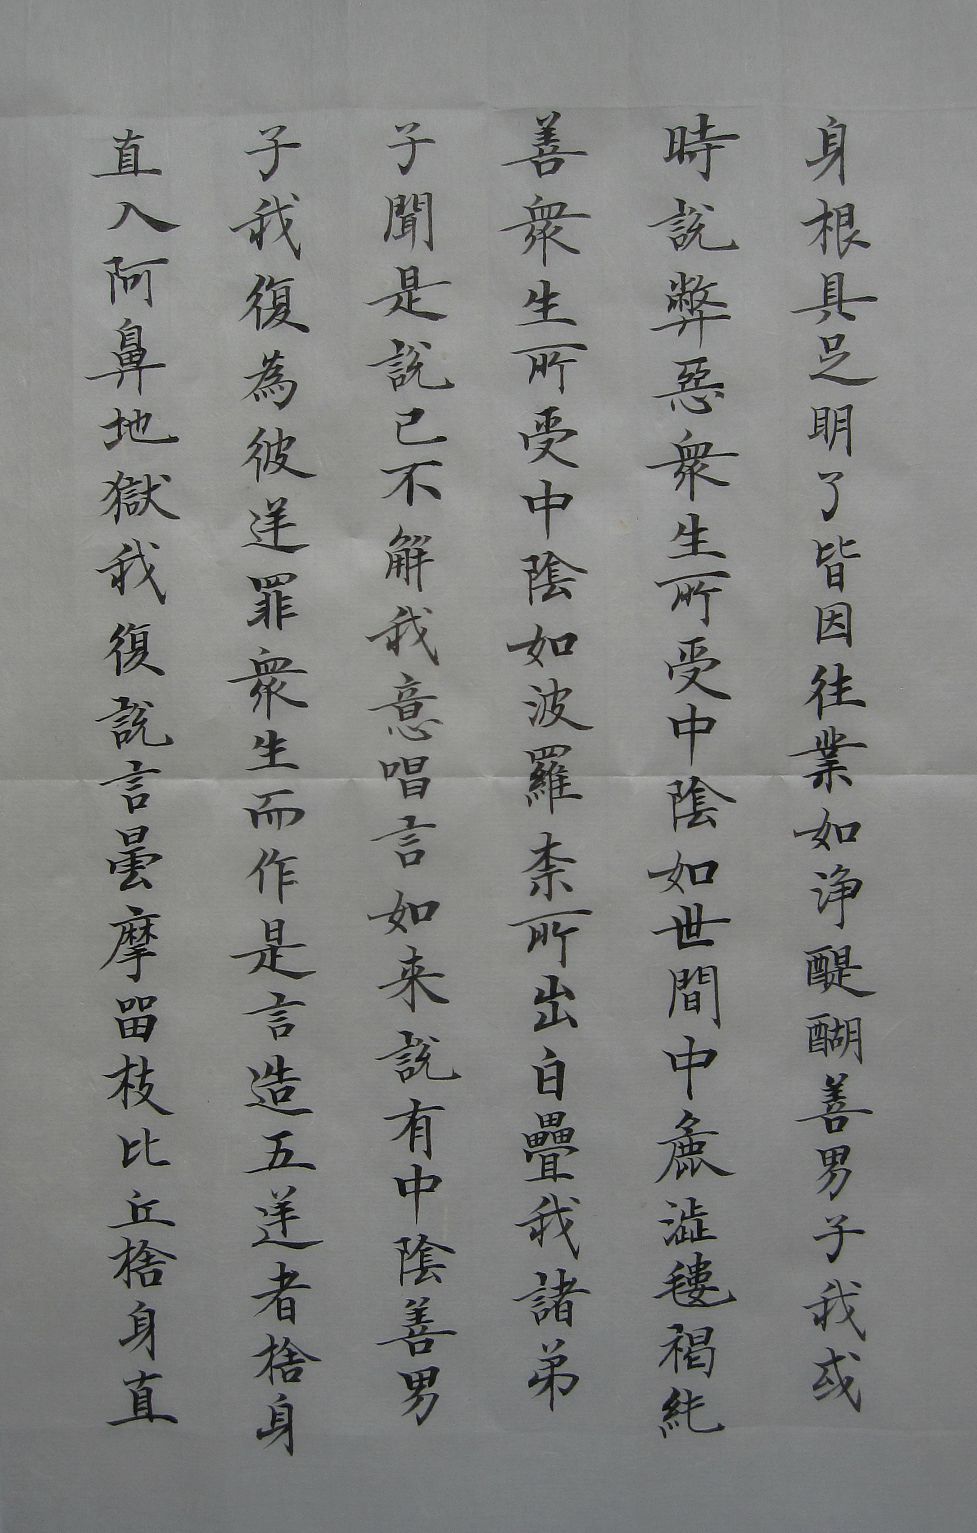 身根具足明了皆因往業如净醍醐善男子我或
時說弊惡衆生所受中陰如世間中麁澁氀褐純
善衆生所受中陰如波羅柰所出白疊我諸弟
子聞是說已不解我意唱言如来說有中陰善男
子我復為彼逆罪衆生而作是言造五逆者捨身
直入阿鼻地獄我復說言曇摩留枝比丘捨身直